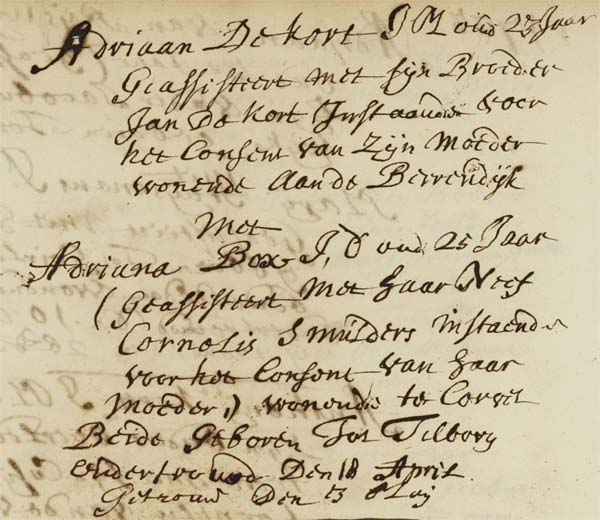 Adriaan De Kort J M oud 25 Jaar
Geassisteert met sijn Broeder
Jan De Kort Instaande voor
het Consent van Zijn Moeder
wonende aan de Berrendijk
Met
Adriana Box J, D oud 25 Jaar
(Geassisteert Met haar Neef
Cornelis Smulders instaende
voor het Consent van haar
Moeder,) wonende te Corvel
Beide Geboren Tot Tilborg
ondertrouwd Den 18 April
Getrouwt Den 3 May